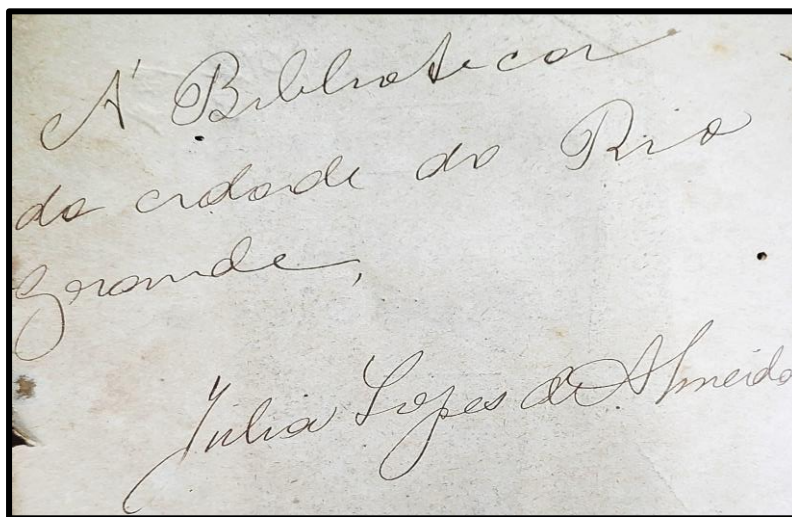 A' Bibliotheca
da cidade do Rio
Grande,
Julia Lopes de Almeida